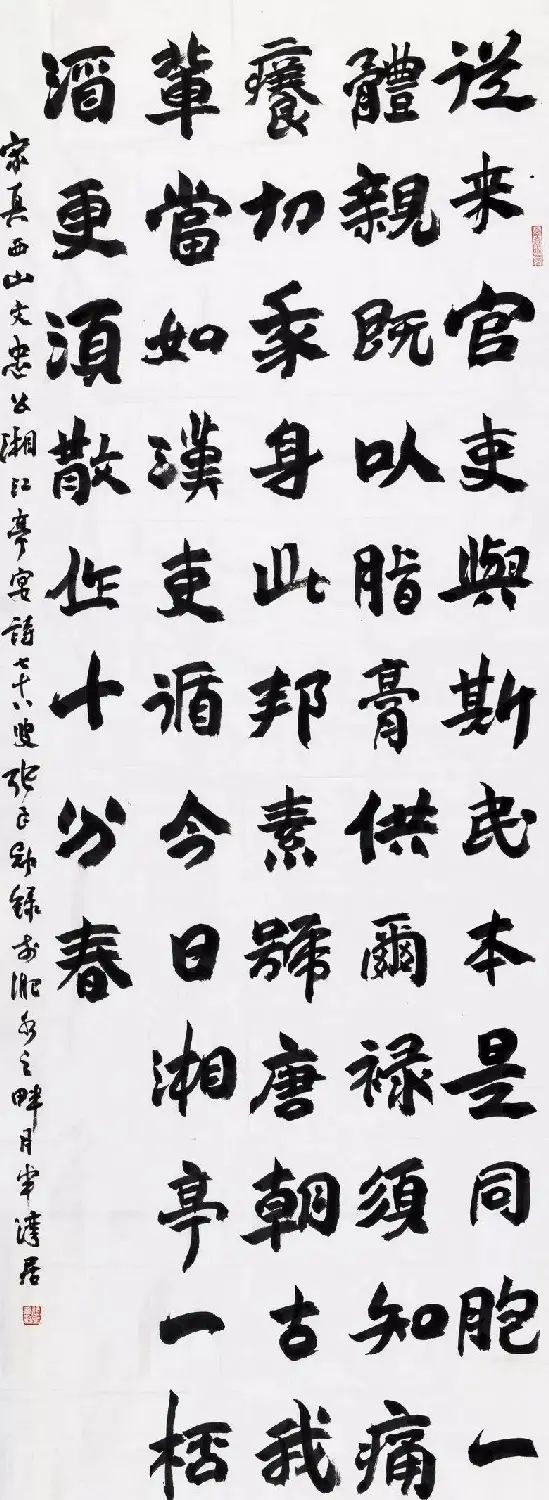 從来官吏與斯民本是同胞一
體親既以脂膏供爾禄須知痛
癢切身此邦素號唐朝古我
輩當如漢吏循今日湘亭一桮
酒更須散作十分春
宋真西山文忠公湘江亭宴詩七十八叟張録於淝水之畔月牙灣居